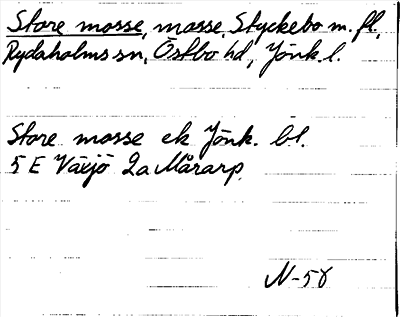 Store mosse, mosse, Styckebo m. fl.,
Rydaholms sn, Östbo hd, Jönk. l.
Store mosse ek Jönk. bl.
5 E Växjö 2a Mårarp.
N-58